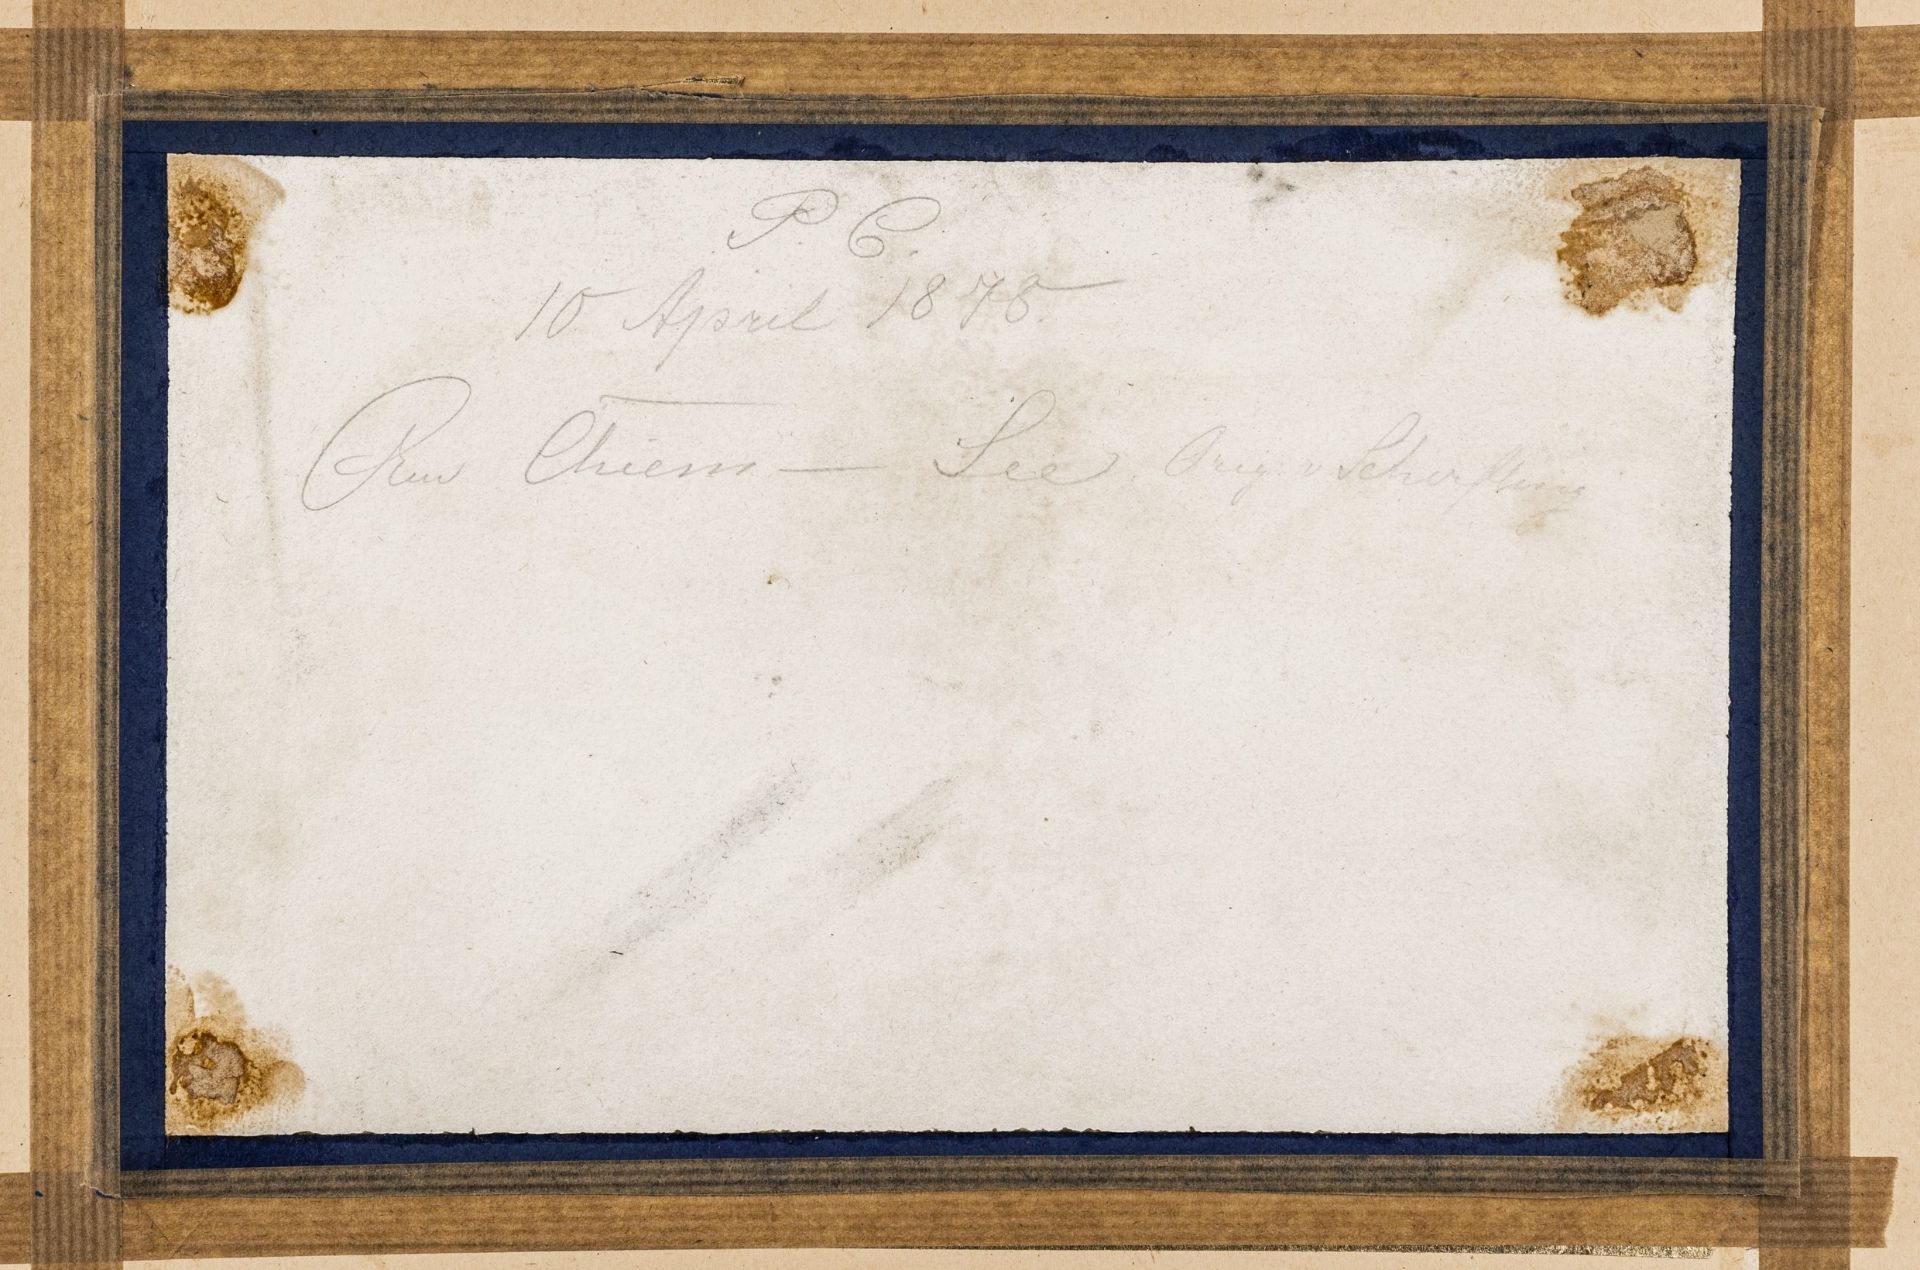 P. C.
10 April 1878.
Chiem — See Orig. v